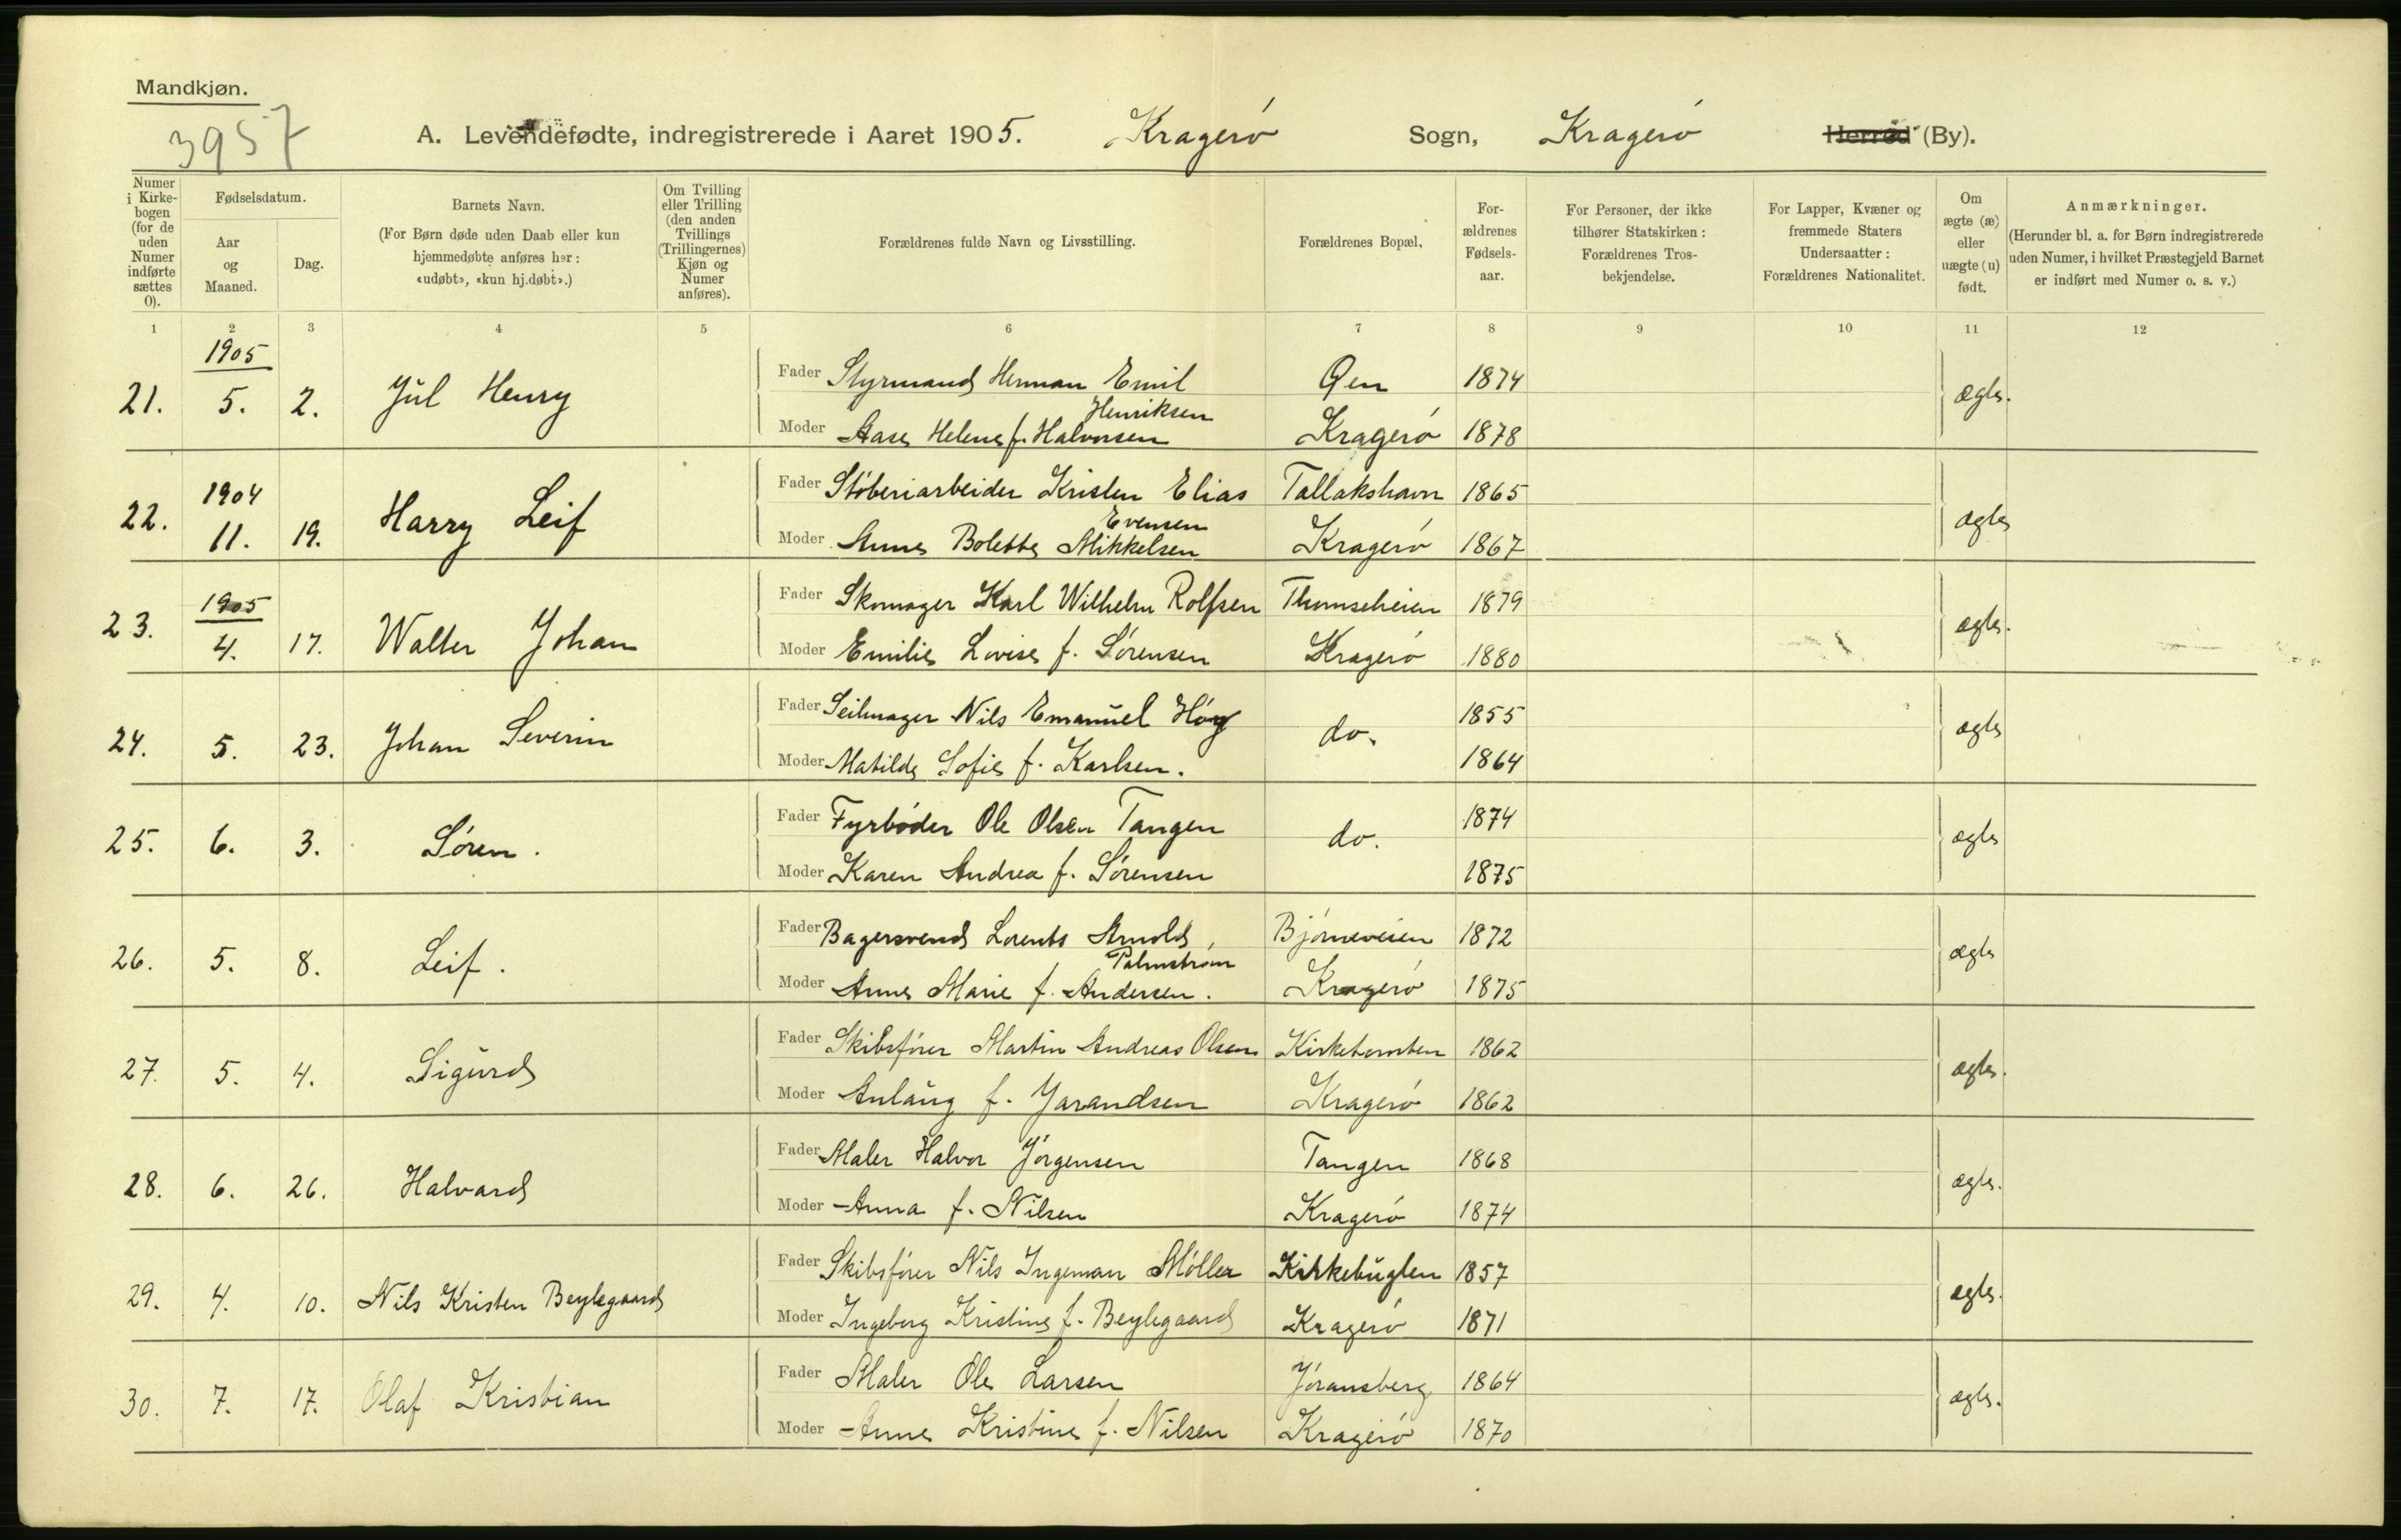 Mandkjøn.
3957
A. Levendefødte, indregistrerede i Aaret 1905. Kragerø Sogn, Kragerø Herred (By).
Numer i Kirkebogen (for de uden Numer indførte sættes 0).
Fødselsdatum.
Aar og Maaned.
Dag.
Barnets Navn.
(For Børn døde uden Daab eller kun hjemmedøbte anføres her: «udøbt», «kun hj.døbt».)
Om Tvilling eller Trilling (den anden Tvillings (Trillingernes) Kjøn og Numer anføres).
Forældrenes fulde Navn og Livsstilling.
Forældrenes Bopæl.
For-ældrenes Fødsels-aar.
For Personer, der ikke tilhører Statskirken: Forældrenes Tros-bekjendelse.
For Lapper, Kvæner og fremmede Staters Undersaatter: Forældrenes Nationalitet.
Om ægte (æ) eller uægte (u) født.
Anmærkninger.
(Herunder bl. a. for Børn indregistrerede uden Numer, i hvilket Præstegjeld Barnet er indført med Numer o. s. v.)
1 2 3 4 5 6 7 8 9 10 11 12
1905
21. 5. 2. Jul Henry Fader Styrmand Herman Emil Henriksen Øen 1874 ægte.
Moder Aase Helene f. Halvorsen Kragerø 1878
1904
22. 11. 19. Harry Leif Fader Støberiarbeider Kristen Elias Evensen Tallakshavn 1865 ægte
Moder Anne Bolette Mikkelsen Kragerø 1867
1905
23. 4. 17. Walter Johan Fader Skomager Karl Wilhelm Rolfsen Thomseheien 1879 ægte.
Moder Emilie Lovise f. Sørensen Kragerø 1880
24. 5. 23. Johan Severin Fader Seilmager Nils Emanuel Høeg do. 1855 ægte
Moder Matilde Sofie f. Karlsen. 1864
25. 6. 3. Søren. Fader Fyrbøder Ole Olsen Tangen do. 1874 ægte
Moder Karen Andrea f. Sørensen 1875
26. 5. 8. Leif. Fader Bagersvend Lorents Arnold, Palmstrøm Bjørneveien 1872 ægte
Moder Anne Marie f. Andersen. Kragerø 1875
27. 5. 4. Sigurd Fader Skibsfører Martin Andreas Olsen Kirketomten 1862 ægte.
Moder Anlaug f. Jarandsen Kragerø 1862
28. 6. 26. Halvard Fader Maler Halvor Jørgensen Tangen 1868 ægte.
Moder Anna f. Nilsen Kragerø 1874
29. 4. 10. Nils Kristen Beylegaard Fader Skibsfører Nils Ingeman Møller Kirkebugten 1857 ægte.
Moder Ingeborg Kristine f. Beylegaard Kragerø 1871
30. 7. 17. Olaf Kristian Fader Maler Ole Larsen Jøransberg 1864 ægte.
Moder Anne Kristine f. Nilsen Kragerø 1870